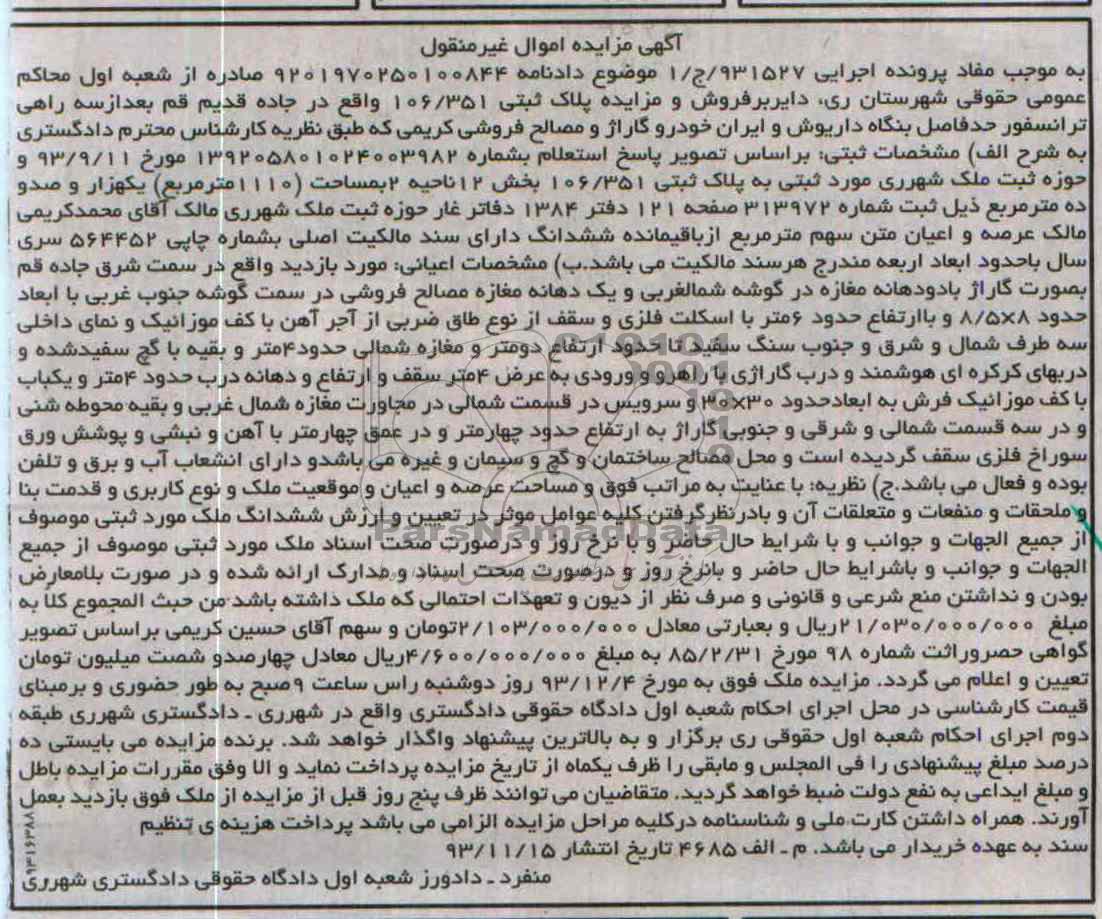 آگهی مزایده اموال غیرمنقول
به موجب مفاد پرونده اجرایی ۹۳۱۵۲۷/ج/۱ موضوع دادنامه ۹۲۰۱۹۷۰۲۵۰۱۰۰۸۴۴ صادره از شعبه اول محاکم
عمومی حقوقی شهرستان ری، دایربرفروش و مزایده پلاک ثبتی ۱۰۶/۳۵۱ واقع در جاده قدیم قم بعدازسه راهی
ترانسفور حدفاصل بنگاه داریوش و ایران خودرو گاراژ و مصالح فروشی کریمی که طبق نظریه کارشناس محترم دادگستری
به شرح الف) مشخصات ثبتی: براساس تصویر پاسخ استعلام بشماره ۱۳۹۲۰۵۸۰۱۰۲۴۰۰۳۹۸۲ مورخ ۹۳/۹/۱۱ و
حوزه ثبت ملک شهرری مورد ثبتی به پلاک ثبتی ۱۰۶/۳۵۱ بخش ۱۲ناحیه ۲بمساحت (۱۱۱۰مترمربع) یکهزار و صدو
ده مترمربع ذیل ثبت شماره ۳۱۳۹۷۲ صفحه ۱۲۱ دفتر ۱۳۸۴ دفاتر غار حوزه ثبت ملک شهرری مالک آقای محمدکریمی
مالک عرصه و اعیان متن سهم مترمربع ازباقیمانده ششدانگ دارای سند مالکیت اصلی بشماره چاپی ۵۶۴۴۵۲ سری
سال باحدود ابعاد اربعه مندرج هرسند مالکیت می باشد.ب) مشخصات اعیانی: مورد بازدید واقع در سمت شرق جاده قم
بصورت گاراژ بادودهانه مغازه در گوشه شمالغربی و یک دهانه مغازه مصالح فروشی در سمت گوشه جنوب غربی با ابعاد
حدود ۸×۸/۵ و باارتفاع حدود ۶متر با اسکلت فلزی و سقف از نوع طاق ضربی از آجر آهن با کف موزائیک و نمای داخلی
سه طرف شمال و شرق و جنوب سنگ سفید تا حدود ارتفاع دومتر و مغازه شمالی حدود۴متر و بقیه با گچ سفیدشده و
دربهای کرکره ای هوشمند و درب گاراژی با راهرو ورودی به عرض ۴متر سقف و ارتفاع و دهانه درب حدود ۴متر و یکباب
با کف موزائیک فرش به ابعادحدود ۳۰×۳۰ و سرویس در قسمت شمالی در مجاورت مغازه شمال غربی و بقیه محوطه شنی
و در سه قسمت شمالی و شرقی و جنوبی گاراژ به ارتفاع حدود چهارمتر و در عمق چهارمتر با آهن و نبشی و پوشش ورق
سوراخ فلزی سقف گردیده است و محل مصالح ساختمان و گچ و سیمان و غیره می باشدو دارای انشعاب آب و برق و تلفن
بوده و فعال می باشد.ج) نظریه: با عنایت به مراتب فوق و مساحت عرصه و اعیان و موقعیت ملک و نوع کاربری و قدمت بنا
و ملحقات و منفعات و متعلقات آن و بادرنظرگرفتن کلیه عوامل موثر در تعیین و ارزش ششدانگ ملک مورد ثبتی موصوف
از جمیع الجهات و جوانب و با شرایط حال حاضر و با نرخ روز و درصورت صحت اسناد ملک مورد ثبتی موصوف از جمیع
الجهات و جوانب و باشرایط حال حاضر و بانرخ روز و درصورت صحت اسناد و مدارک ارائه شده و در صورت بلامعارض
بودن و نداشتن منع شرعی و قانونی و صرف نظر از دیون و تعهدات احتمالی که ملک داشته باشد من حیث المجموع کلا به
مبلغ ۲۱/۰۳۰/۰۰۰/۰۰۰ریال و بعبارتی معادل ۲/۱۰۳/۰۰۰/۰۰۰تومان و سهم آقای حسین کریمی براساس تصویر
گواهی حصروراثت شماره ۹۸ مورخ ۸۵/۲/۳۱ به مبلغ ۴/۶۰۰/۰۰۰/۰۰۰ریال معادل چهارصدو شصت میلیون تومان
تعیین و اعلام می گردد. مزایده ملک فوق به مورخ ۹۳/۱۲/۴ روز دوشنبه راس ساعت ۹صبح به طور حضوری و برمبنای
قیمت کارشناسی در محل اجرای احکام شعبه اول دادگاه حقوقی دادگستری واقع در شهرری ـ دادگستری شهرری طبقه
دوم اجرای احکام شعبه اول حقوقی ری برگزار و به بالاترین پیشنهاد واگذار خواهد شد. برنده مزایده می بایستی ده
درصد مبلغ پیشنهادی را فی المجلس و مابقی را ظرف یکماه از تاریخ مزایده پرداخت نماید و الا وفق مقررات مزایده باطل
و مبلغ ایداعی به نفع دولت ضبط خواهد گردید. متقاضیان می توانند ظرف پنج روز قبل از مزایده از ملک فوق بازدید بعمل
آورند. همراه داشتن کارت ملی و شناسنامه درکلیه مراحل مزایده الزامی می باشد پرداخت هزینه ی تنظیم
سند به عهده خریدار می باشد. م ـ الف ۴۶۸۵ تاریخ انتشار ۹۳/۱۱/۱۵
منفرد ـ دادورز شعبه اول دادگاه حقوقی دادگستری شهرری
۹۳۱۶۳۸۸
ParsNamadData